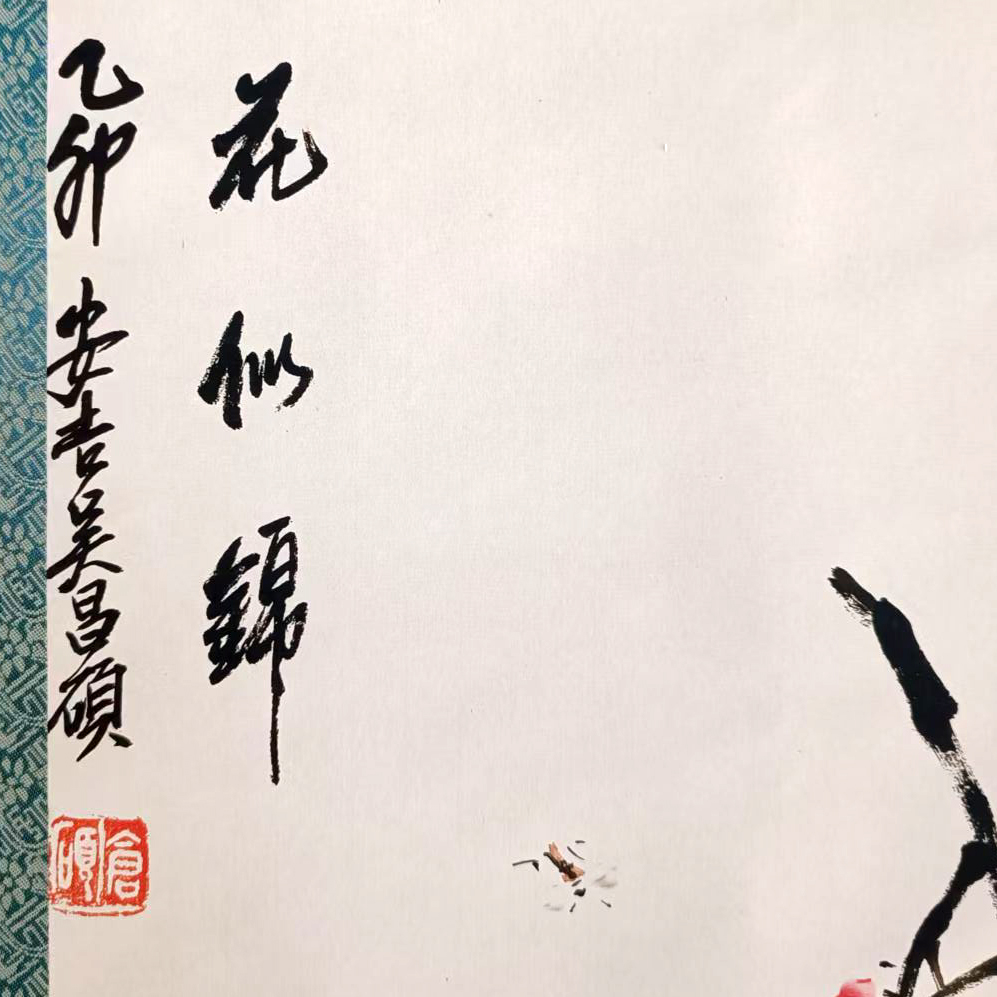 花似錦
乙卯 安吉吴昌碩
倉碩